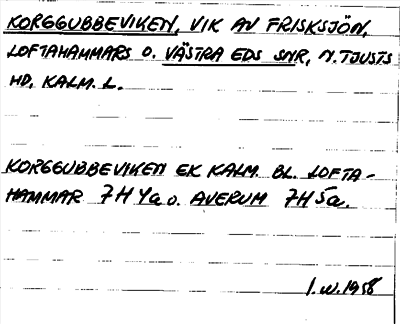 KORGGUBBEVIKEN, VIK AV FRISKSJÖN,
LOFTAHAMMARS O. VÄSTRA EDS SNR, N. TJUSTS
HD, KALM. L.
KORGGUBBEVIKEN EK KALM. BL. LOFTA-
HAMMAR 7H 4a o. AVERUM 7H 5a.
1.W.1958